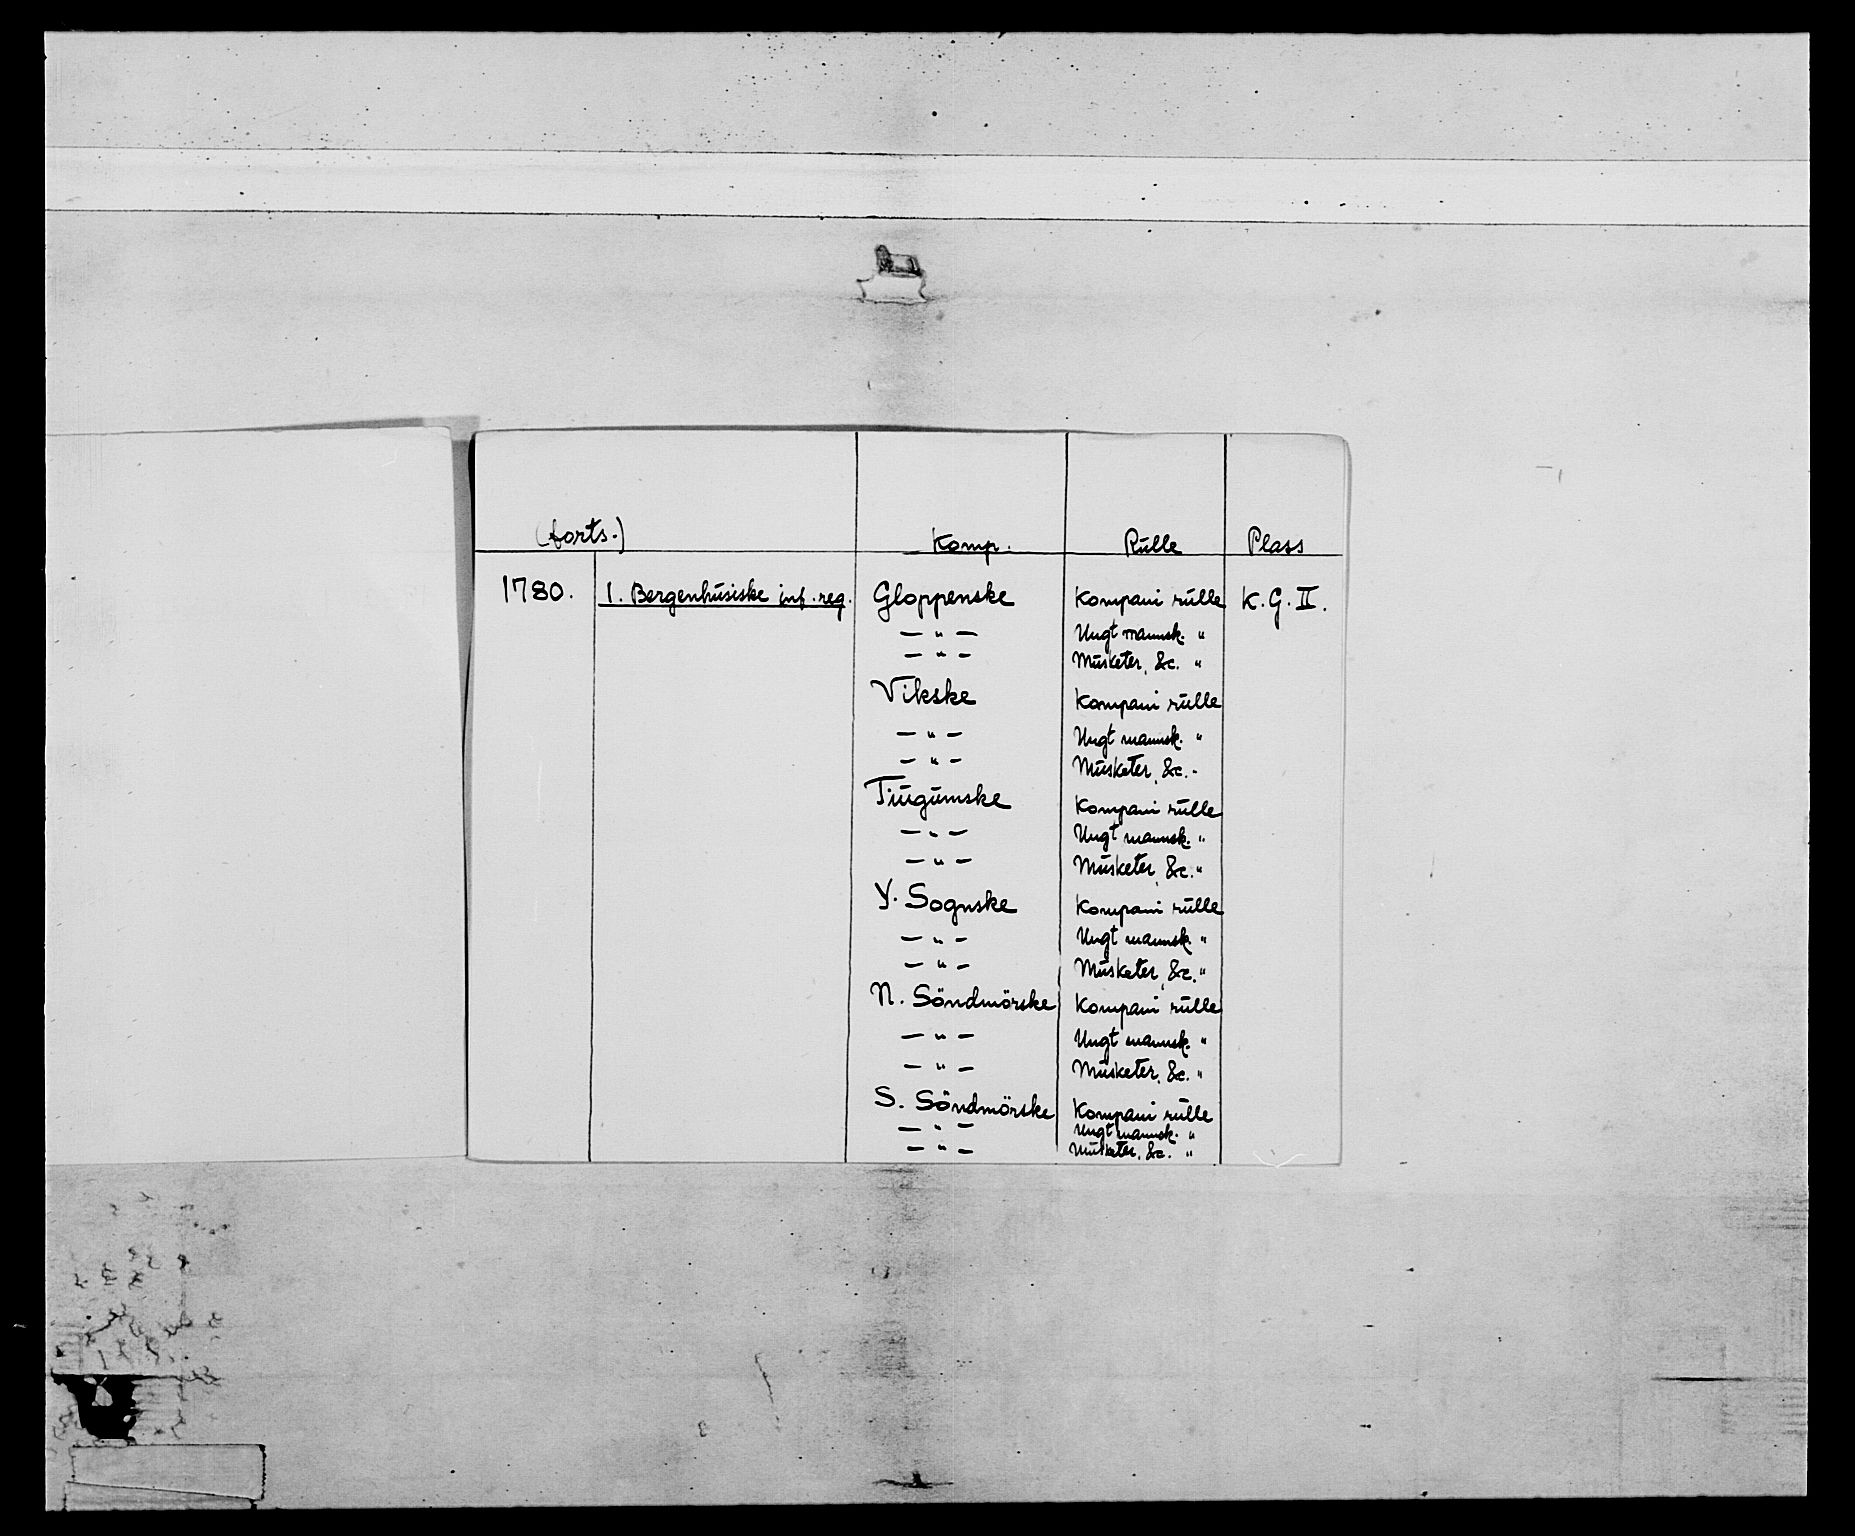 (forts.) Komp. Rulle Plass
1780. 1. Bergenhusiske inf. reg. Gloppenske Kompani rulle K.G.II.
— " — Ungt mannsk. "
— " — Musketer, &c. "
Vikske Kompani rulle
— " — Ungt mannsk. "
— " — Musketer, &c. "
Tiugumske Kompani rulle
— " — Ungt mannsk. "
— " — Musketer, &c. "
Y. Sognske Kompani rulle
— " — Ungt mannsk. "
— " — Musketer, &c. "
N. Söndmörske Kompani rulle
— " — Ungt mannsk. "
— " — Musketer, &c. "
S. Söndmörske Kompani rulle
— " — Ungt mannsk. "
— " — Musketer, &c. "